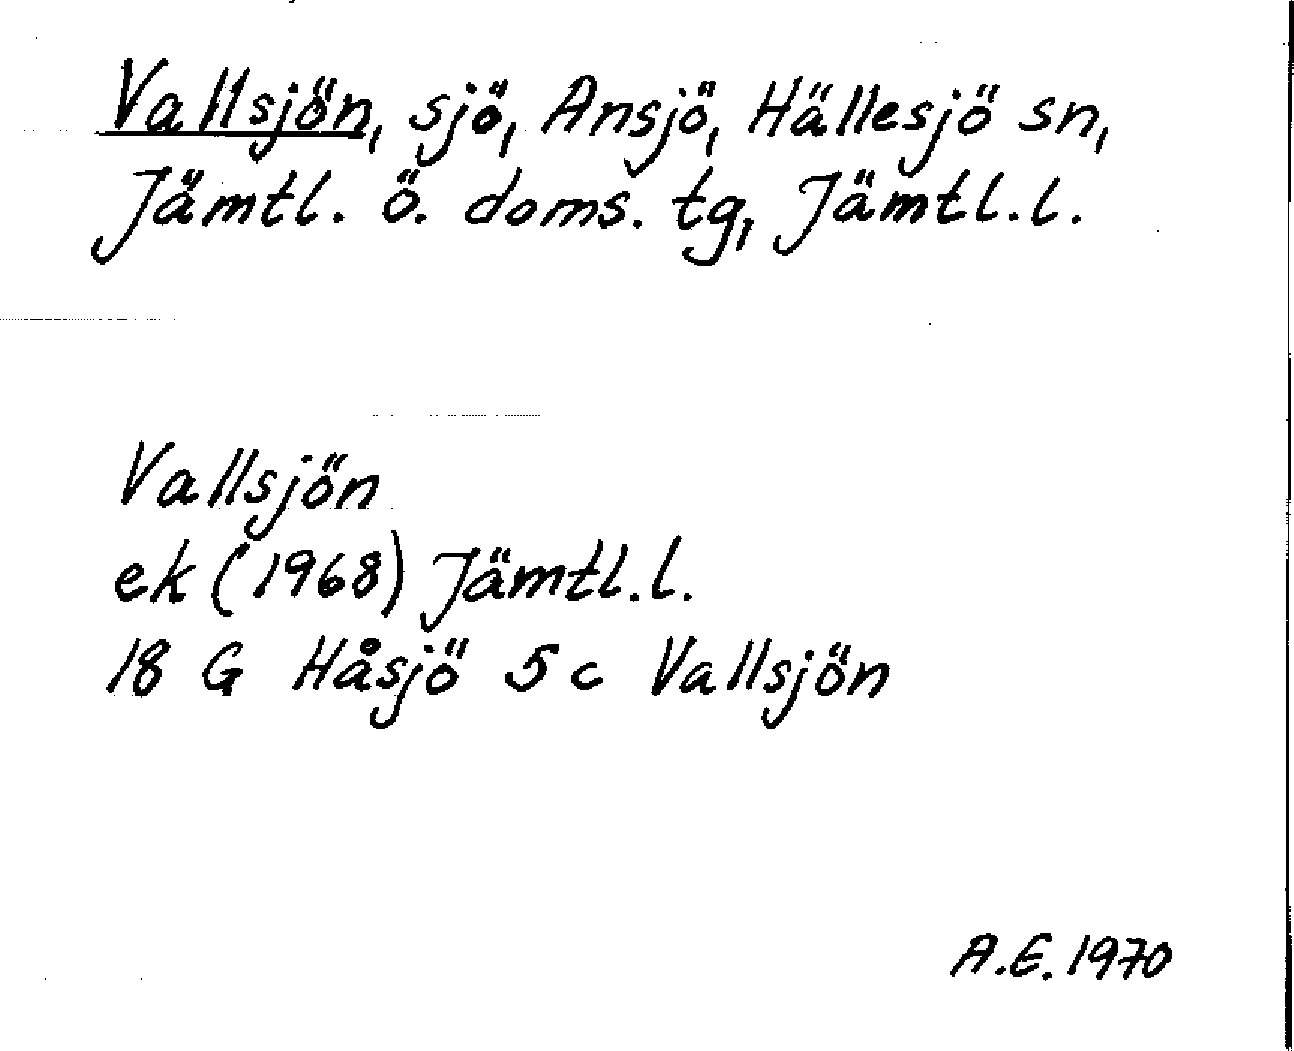 Vallsjön, sjö, Ansjö, Hällesjö sn,
Jämtl. ö. doms. tg, Jämtl. l.
Vallsjön
ek (1968) Jämtl. l.
18 G Håsjö 5 c Vallsjön
A.E. 1970